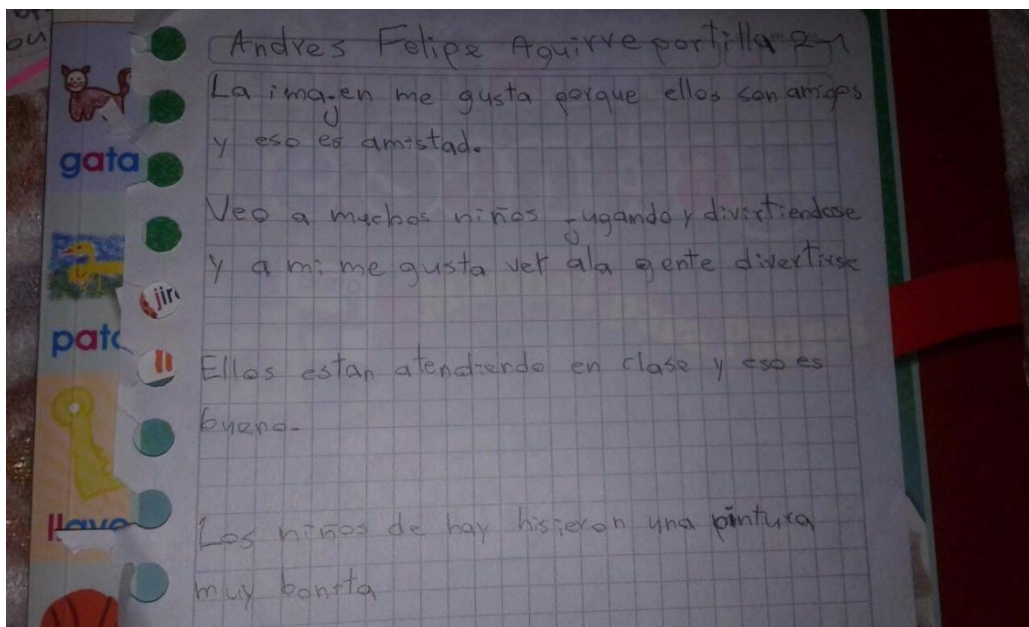 Andres Felipe Aguirre portilla 2-1
La imajen me gusta porque ellos son amigos
y eso es amistad.
Veo a muchos niños jugando y divirtiendose
y a mi me gusta ver ala gente divertirse
Ellos estan atendiendo en clase y eso es
bueno.
Los niños de hay hisieron una pintura
muy bonita
gata
jir
pato
llave